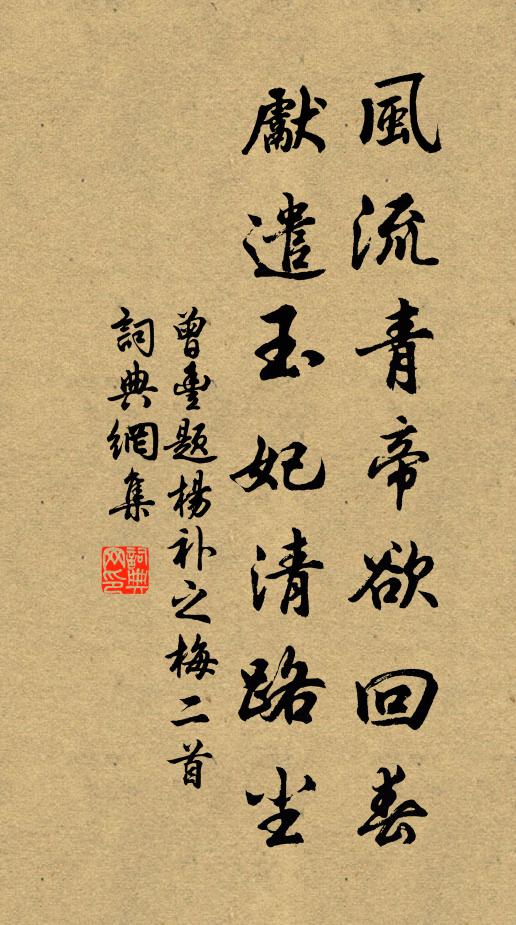 風流青帝欲回春
獻遣玉妃清路尘
曾豊题楊补之梅二首
詞典網集
詞典网印